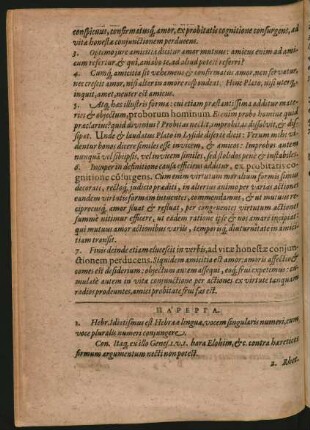 conspicuus, confirmatusq; amor, ex probitatis cognitione consurgens, ad
vitæ honestæ conjunctionem perducens.
3. Optimo jure amicitia dicitur amor mutuus: amicus enim ad ami-
cum refertur, & qui amabo te, ad aliud poteri referri?
4. Cumq; amicitia sit vehemens & confirmatus amor, non servatur,
nec crescit amor, nisi alter in alterius redhamet. Hinc Plato, nisi uterq;
inquit, amet, neuter est amicus.
5. Atq; hæc illustris forma: cui etiam præstantissima additur mate-
ries & objectum, proborum hominum. Etenim probo homine quid
præclarius? quid divinius? Probitas necsit, improbitas dissolvit, & dis-
sipat. Unde & laudatus Plato in Lyside diserte dicit: Verum mihi vi-
dentur bonos dicere similes esse invicem, & amicos: Improbos autem
nunquam vel sibi ipsis, vel invicem similes, sed stolidos pene & instabiles.
6. Insuper in definitione causa efficiens additur, ex probitatis co-
gnitione consurgens. Cum enim virtutum mortalium formis simus
decorati, rectoq; judicio præditi, in alterius animo per varias actiones
eandem virtutis formam intuemur, commendamus, & at mutuus re-
ciprocusq; amor fiat & resultat, per congruentes virtutum actiones
summe nitimur efficere, ut eadem ratione ipse & nos amare incipiat:
qui mutuus amor actionibus variis, temporisq; diuturnitate in amici-
tiam transit.
7. Finis deinde etiam elucescit in verbis, ad vitæ honestæ conjun-
ctionem perducens. Siquidem amicitia est amor: amoris affectio &
comes est desiderium: objectum autem assequi, eoq; frui expetimus: cu-
mulate autem in vita conjunctione per actiones ex virtute tanquam
radice prodeuntes, amici probitate frui fas est.
ΠΑΡΕΡΓΑ.
1. Hebr. Idiotismus est Hebrææ linguæ, vocem singularis numeri, cum
voce pluralis numeri conjungere.
Con. Itaq; ex illo Genes. 1. v. 1. bara Elohim, & c. contra hæreticos
firmum argumentum necti non potest.
2. Rhet-